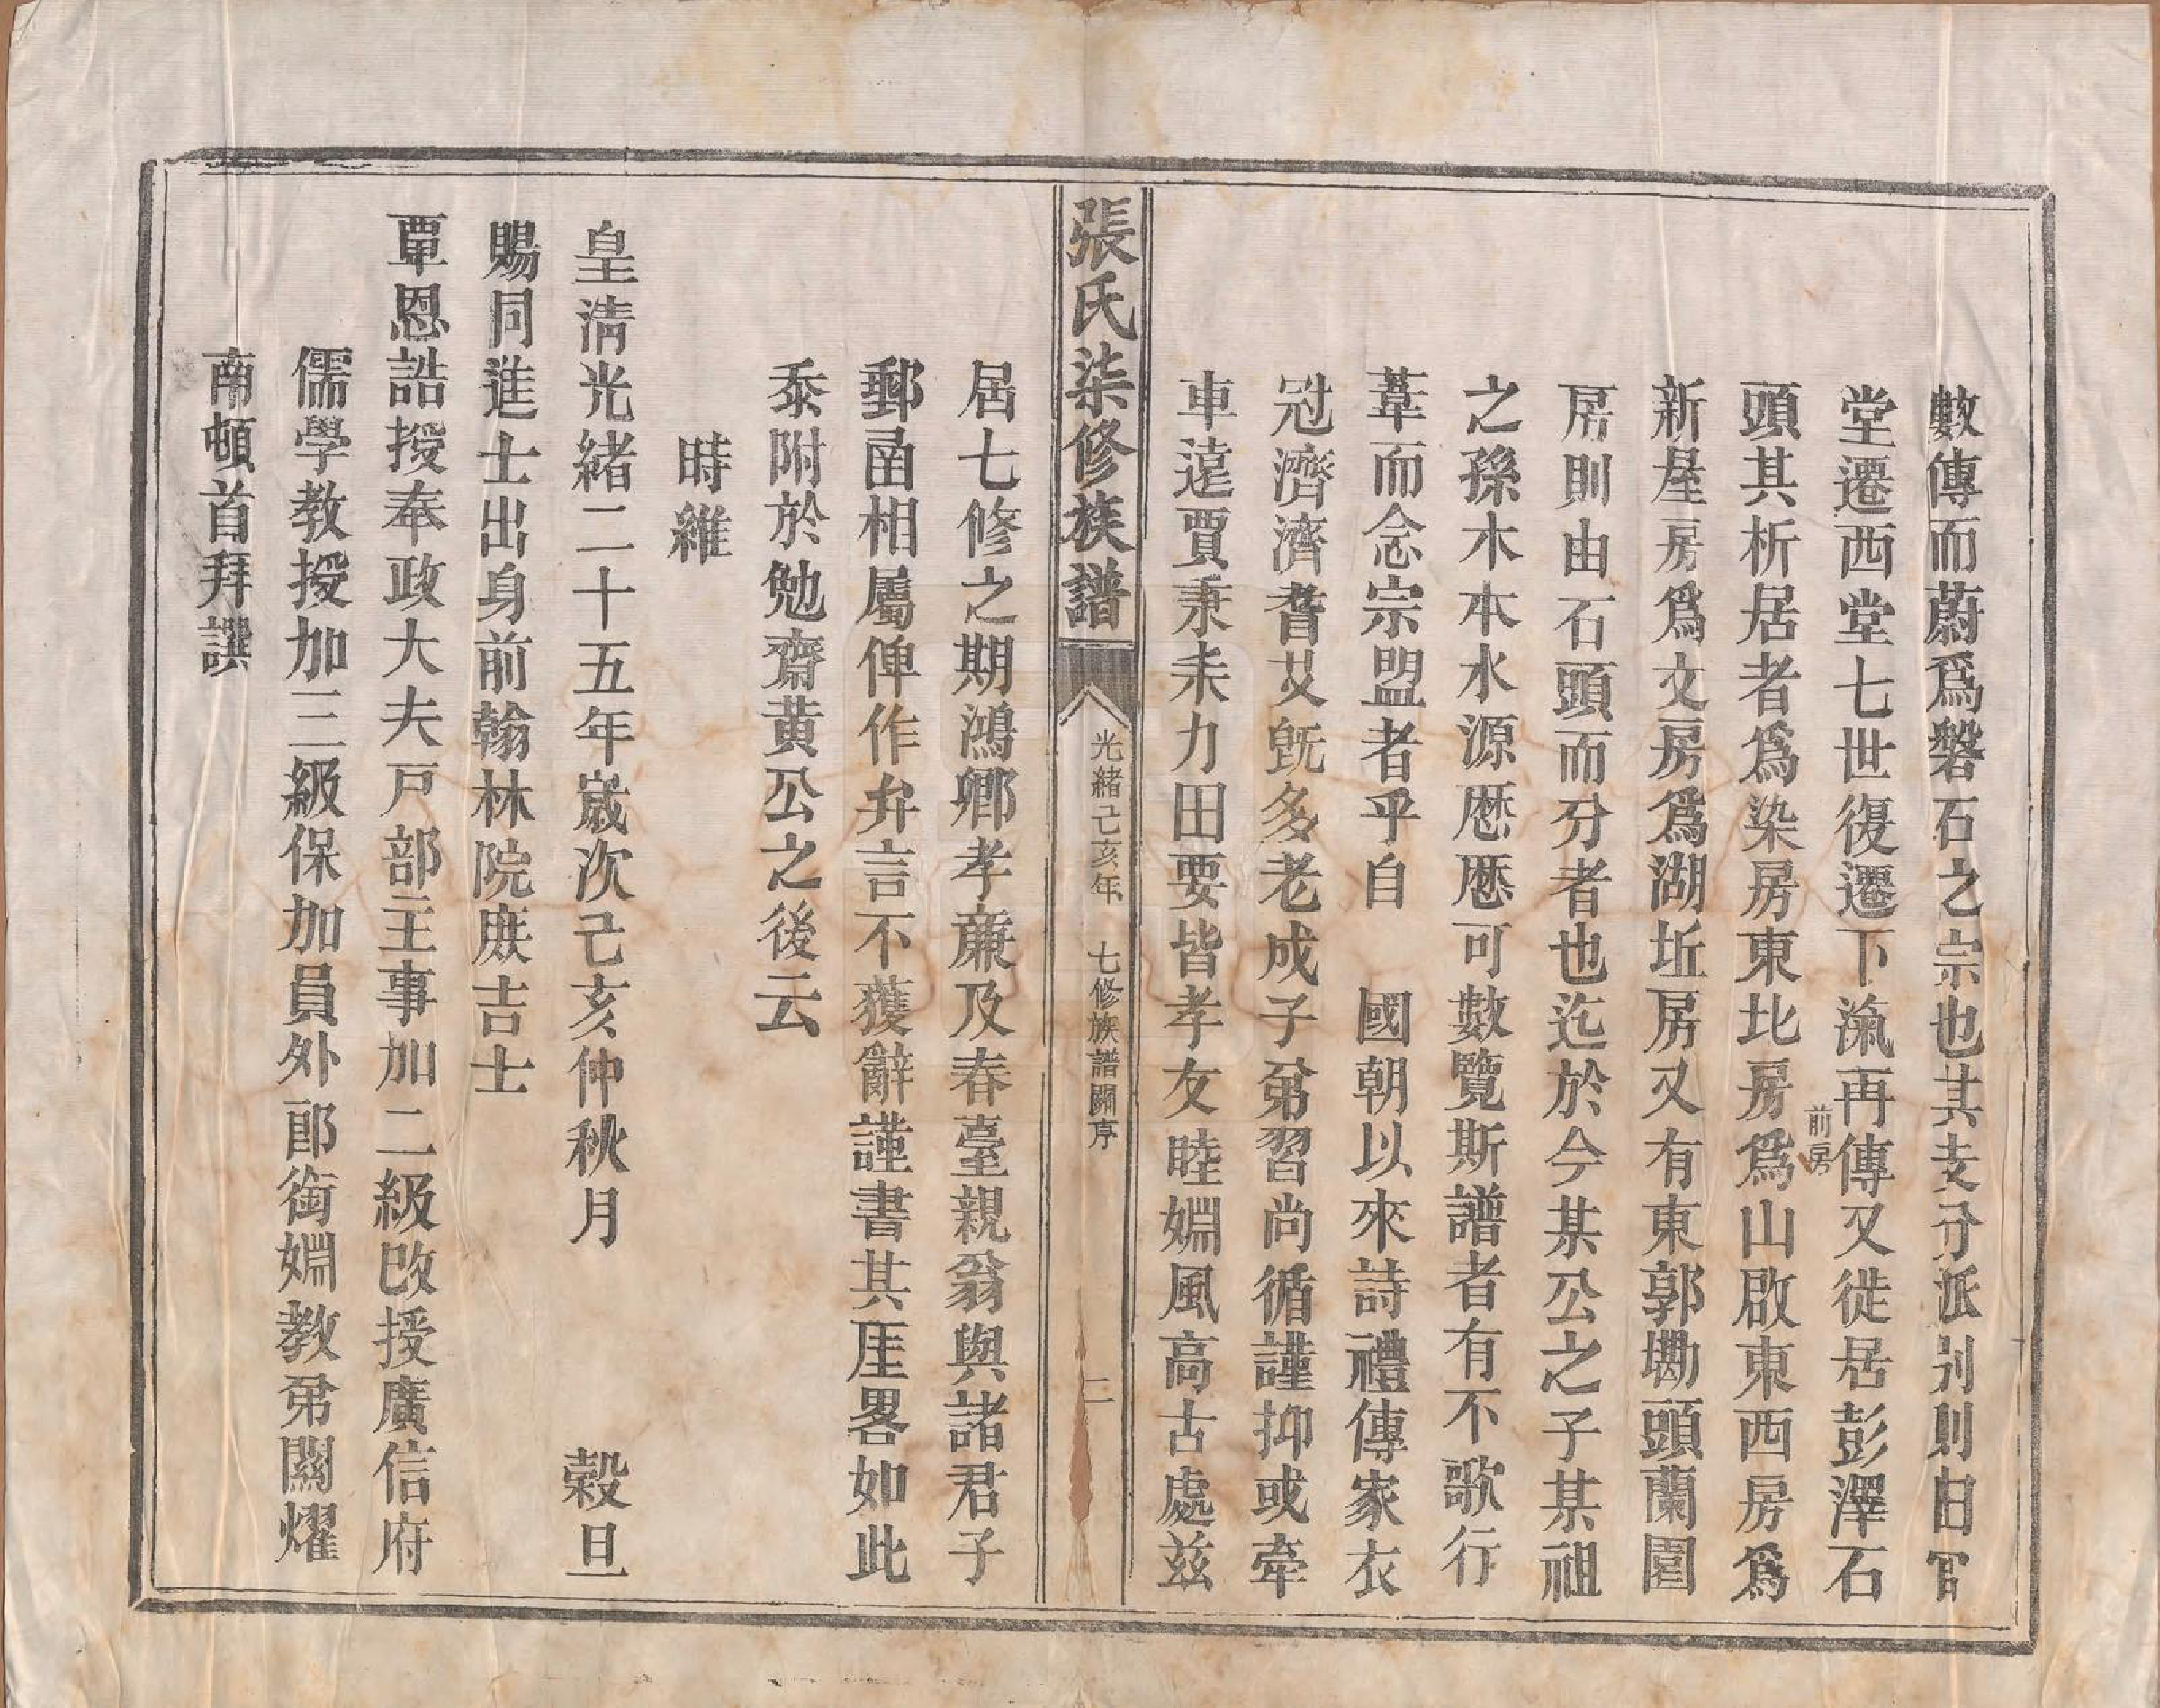 數傳而蔚爲磐石之宗也其支分派别則由官
堂遷西堂七世復遷下滊再傳又徙居彭澤石
前房
頭其析居者爲染房東北房爲山啟東西房爲
新屋房爲文房爲湖坵房又有東郭墈頭蘭園
房則由石頭而分者也迄於今某公之子某祖
之孫木本水源歷歷可數覽斯譜者有不歌行
葦而念宗盟者乎自　國朝以來詩禮傳家衣
冠濟濟耆艾旣多老成子弟習尚循謹抑或牽
車遠賈秉耒力田要皆孝友睦婣風高古處茲
張氏柒修族譜　光緒己亥年　七修族譜關序　二
居七修之期鴻卿孝亷及春臺親翁與諸君子
郵函相屬俾作弁言不獲辭謹書其厓畧如此
忝附於勉齋黄公之後云
時維
皇淸光緒二十五年嵗次己亥仲秋月　穀旦
賜同進士出身前翰林院庶吉士
覃恩誥授奉政大夫戸部主事加二級改授廣信府
儒學教授加三級保加員外郎銜婣教弟關燿
南頓首拜譔